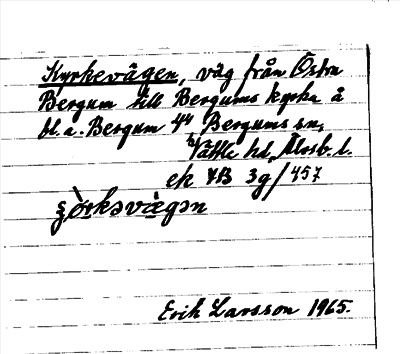 Kyrkevägen, väg från Östra
Bergum till Bergums kyrka å
bl.a. Bergum 4⁴ Bergums sn,
Vättle hd, Älvsb. l.
ek 7B 3g/457
ȿörkəvägən
Erik Larsson 1965.